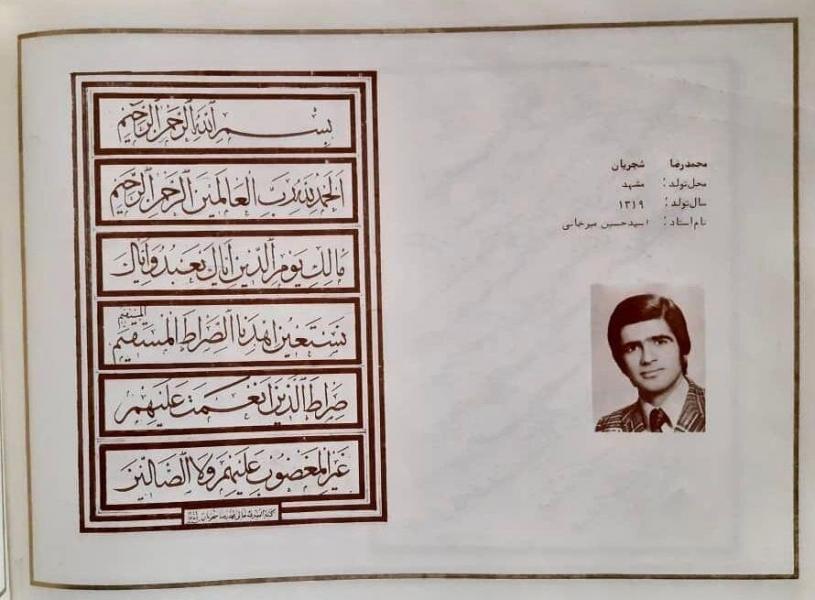 محمدرضا شجریان
محل تولد : مشهد
سال تولد : ۱۳۱۹
نام استاد : سید حسین میرخانی
بسم الله الرحمن الرحیم
الحمد لله رب العالمین الرحمن الرحیم
مالک یوم الدین ایاک نعبد و ایاک
نستعین اهدنا الصراط المستقیم المستقیم
صراط الذین انعمت علیهم
غیر المغضوب علیهم ولا الضالین